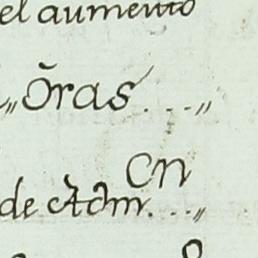 el aumento
„Õras....„
Cn
de Adm....„